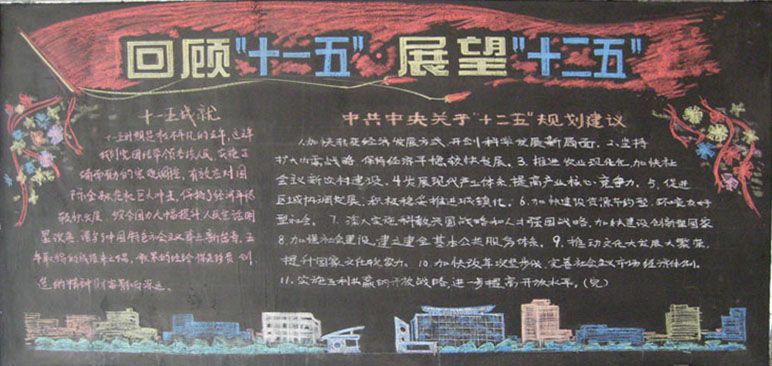 回顾"十一五"·展望"十二五"
十一五成就
十一五时期是极不平凡的五年,这五年
我们党团结带领各族人民,实施正
确而有力的宏观调控,有效应对国
际金融危机巨大冲击,保持了经济平稳
较快发展,综合国力大幅提升,人民生活明
显改善,谱写了中国特色社会主义事业新篇章,五
年取得的成绩来之不易,积累的经验弥足珍贵,创
造的精神财富影响深远。
中共中央关于"十二五"规划建议
1.加快转变经济发展方式,开创科学发展新局面。2.坚持
扩大内需战略,保持经济平稳较快发展。3.推进农业现代化,加快社
会主义新农村建设。4.发展现代产业体系,提高产业核心竞争力。5.促进
区域协调发展,积极稳妥推进城镇化。6.加快建设资源节约型、环境友好
型社会。7.深入实施科教兴国战略和人才强国战略,加快建设创新型国家
8.加强社会建设,建立健全基本公共服务体系。9.推动文化大发展大繁荣,
提升国家文化软实力。10.加快改革攻坚步伐,完善社会主义市场经济体制。
11.实施互利共赢的开放战略,进一步提高对外开放水平。(完)